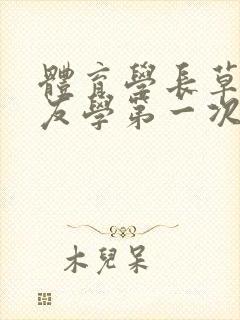 體育學長草
友學第一次
木兒呆